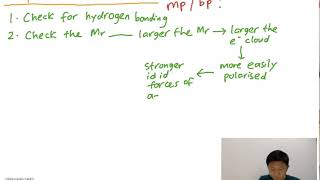 mp/bp?
1. Check for hydrogen bonding
2. Check the Mr — larger the Mr → larger the
e⁻ cloud
↓
more easily
polarised
←
stronger
id id
forces of
a